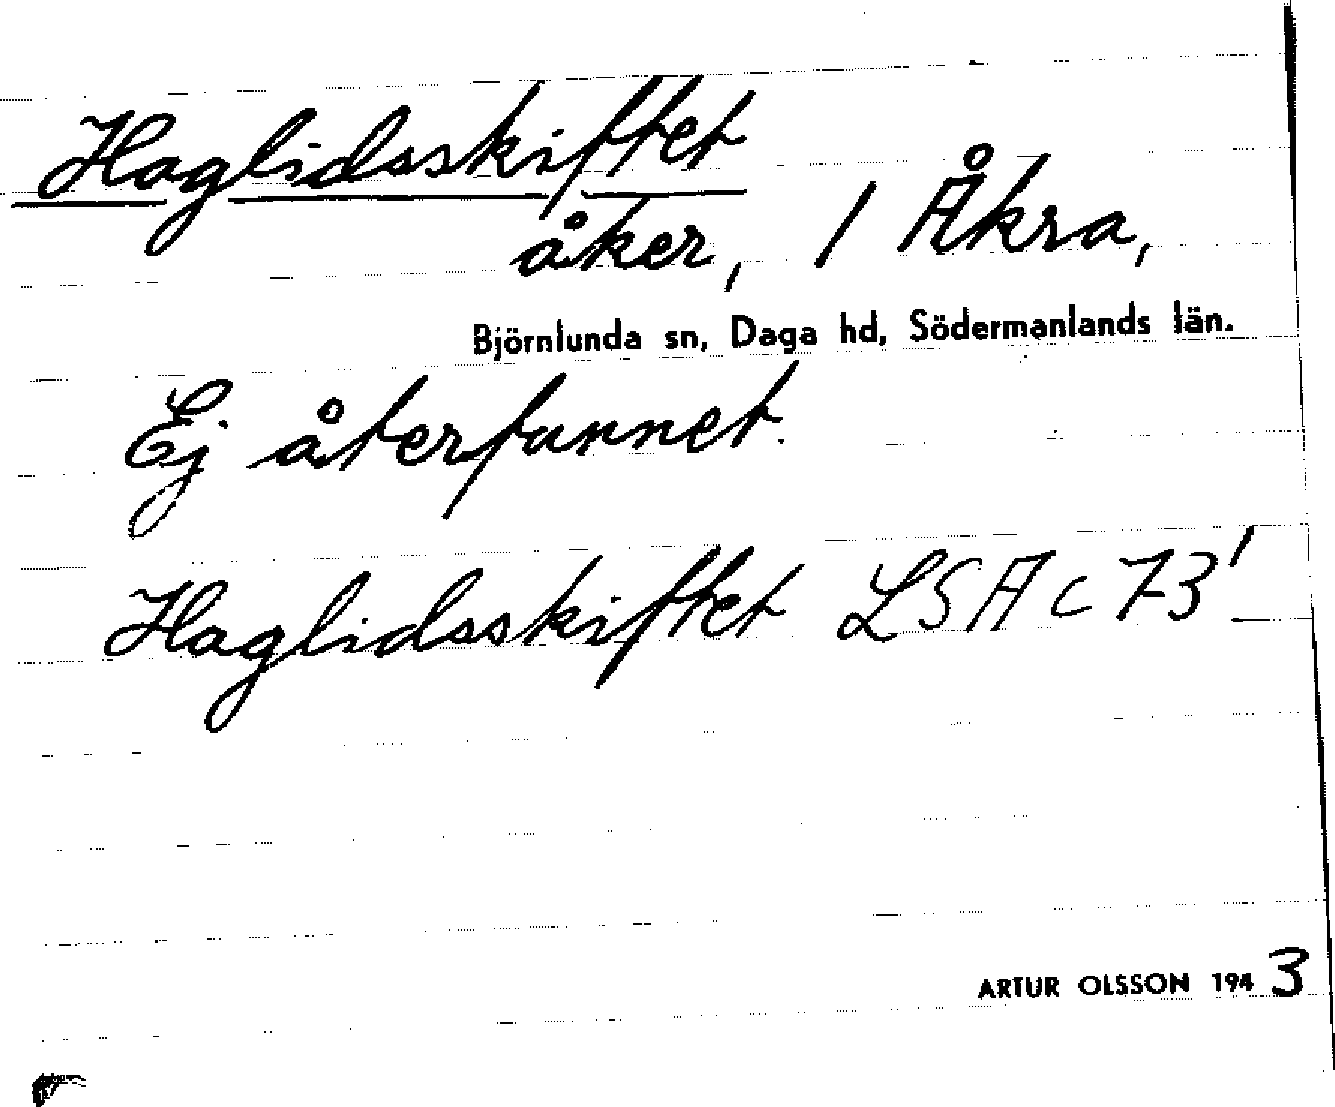 Haglidsskiftet
åker, / Åkra,
Björnlunda sn, Daga hd, Södermanlands län.
Ej återfunnet.
Haglidsskiftet LSA c 73'
ARTUR OLSSON 1943